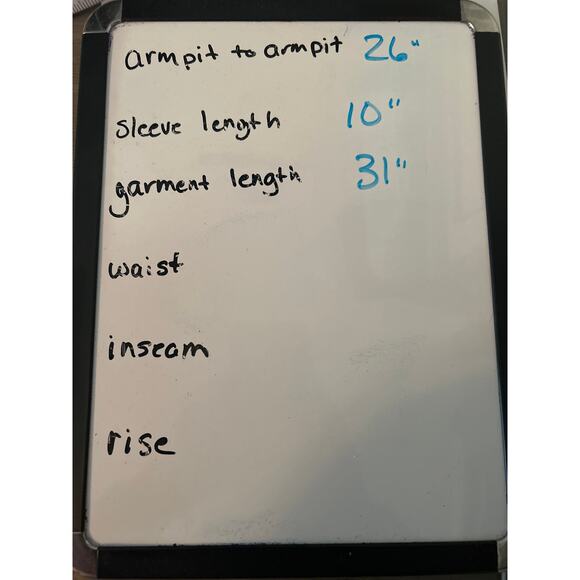 armpit to armpit 26"
sleeve length 10"
garment length 31"
waist
inseam
rise